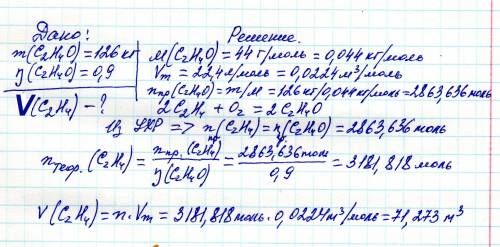 Дано:
m(C2H4O)=126 кг
η(C2H4O)=0,9
V(C2H4)-?
Решение.
M(C2H4O)=44 г/моль=0,044 кг/моль
Vm=22,4 л/моль=0,0224 м³/моль
nпр(C2H4O)=m/M=126 кг/0,044 кг/моль=2863,636 моль
2C2H4+O2=2C2H4O
Из УХР => nпр.(C2H4)=nпр.(C2H4O)=2863,636 моль
nтеор.(C2H4)=nпр.(C2H4)/η(C2H4O)=2863,636 моль/0,9=3181,818 моль
V(C2H4)=n·Vm=3181,818 моль·0,0224 м³/моль=71,273 м³